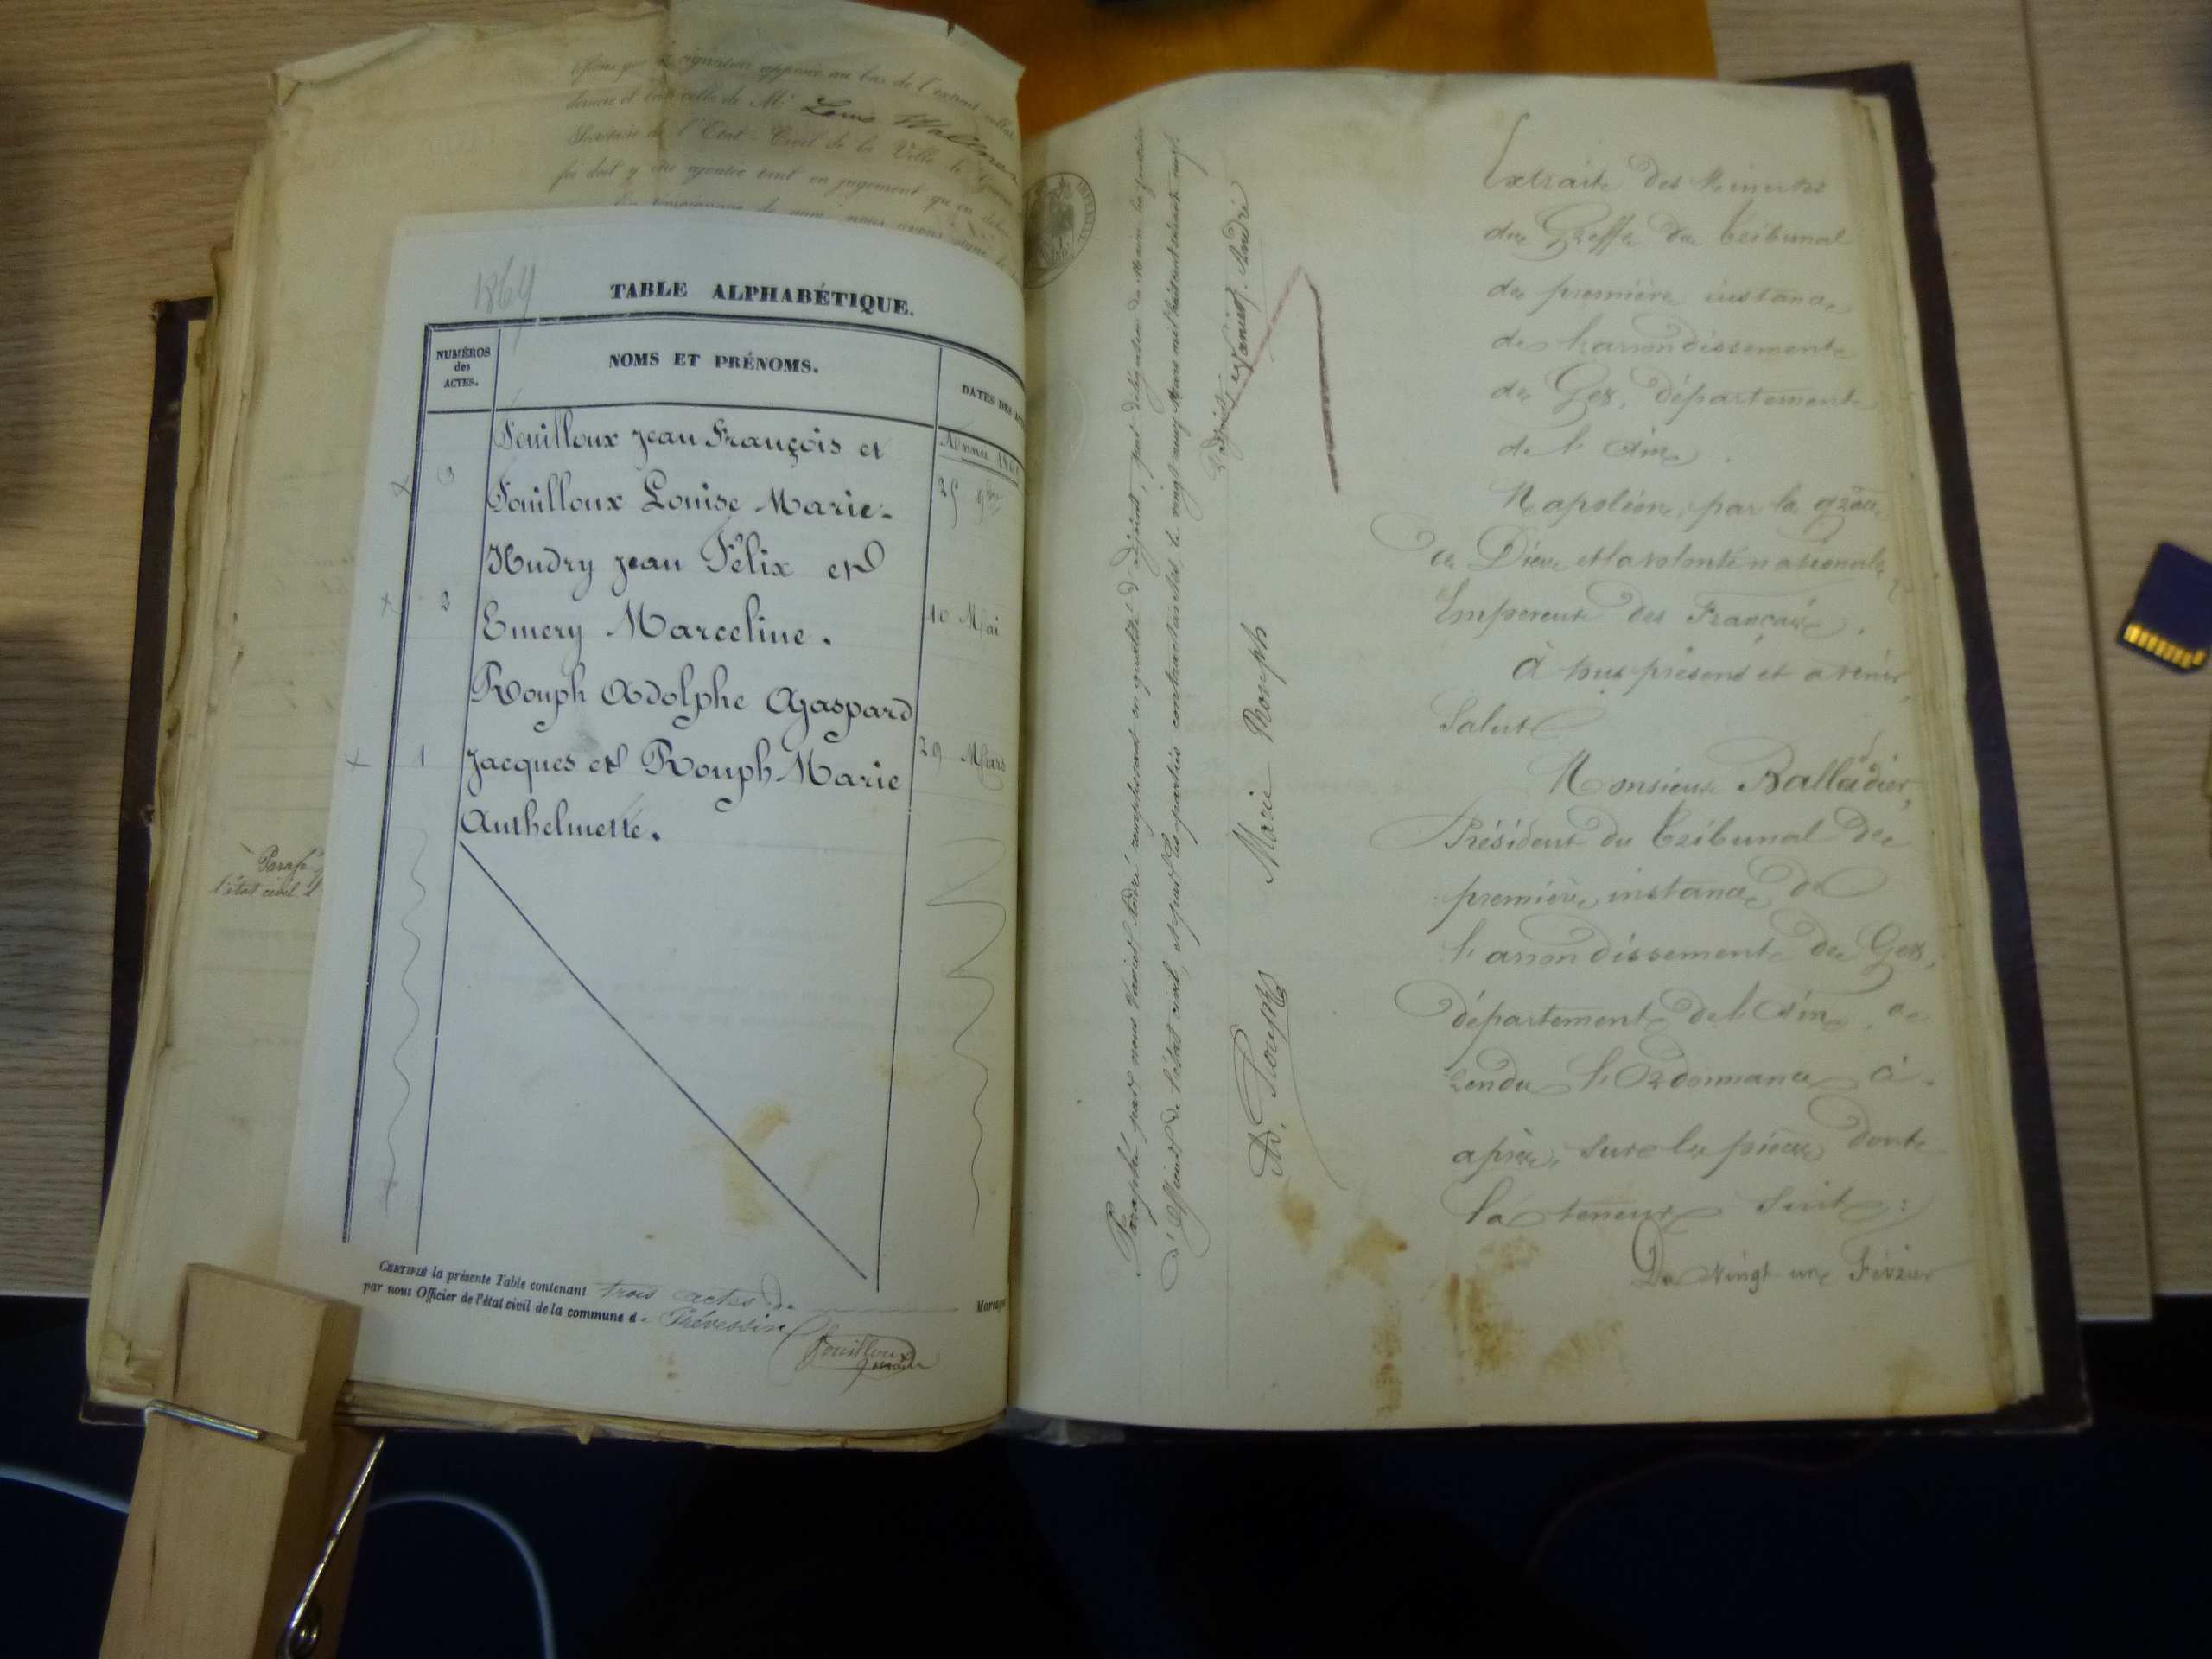 signature apposée au bas de l'extrait
celle de Mr Louis Wallner
de l'Etat-Civil de la Ville de Genève
foi doit y être ajoutée tant en jugement qu'en
1869
TABLE ALPHABÉTIQUE.
NUMÉROS
des
ACTES.
NOMS ET PRÉNOMS.
DATES DES
Année
Fouilloux Jean François et
3
Fouilloux Louise Marie-
25 9bre
Hudry Jean Félix et
2
Emery Marceline.
10 Mai
Rouph Adolphe Gaspard
1
Jacques et Rouph Marie
29 Mars
Anthelmette.
Parafé
l'état civil
CERTIFIÉ la présente Table contenant trois actes de Mariage
par nous Officier de l'état civil de la commune d. Prévessin
Fouilloux
IMPERIAL
Paraphé par nous André remplissant en qualité d'adjoint, par délégation du Maire les fonctions
d'Officier de l'état civil, et par les parties contractantes le vingt neuf Mars mil huit cent soixante neuf.
L'adjoint André
Ad. Rouph Marie Rouph
Extrait des Minutes
du Greffe du Tribunal
de première instance
de l'arrondissement
de Gex, département
de l'Ain.
Napoléon, par la grâce
de Dieu et la volonté nationale
Empereur des Français.
à tous présens et avenir,
Salut
Monsieur Balladier,
Président du Tribunal de
première instance de
l'arrondissement de Gex,
département de l'Ain, a
rendu l'Ordonnance ci-
après, sur la pièce dont
la teneur suit:
Du vingt un Février